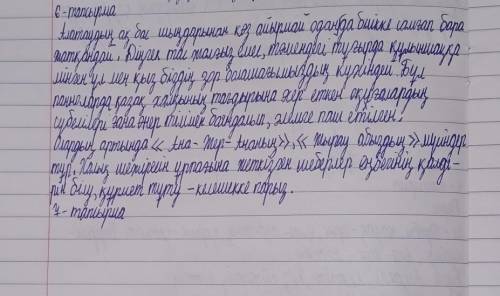 6-тапсырма
Алатаудың ақ бас шыңдарынан көз айырмай одан да биікке самғап бара
жатқандай. Діңгек тас жалғыз емес, төмендегі тұғырда құлыншаққа
мінген ұл мен қыз біздің зор болашағымыздың күзіндей. Бұл
панноларда қазақ халқының тағдырына әсер еткен оқиғалардың
сүбелілері ғана өнер тілімен баяндалып, әлемге паш етілген.
Олардың артында «Ана-Жер-Ананың», «Жырау абыздың» мүсіндері
тұр. Халық шежіресін ұрпағына жеткізген шеберлер еңбегінің қәді-
рін білу, құрмет тұту - келешекке парыз.
7-тапсырма